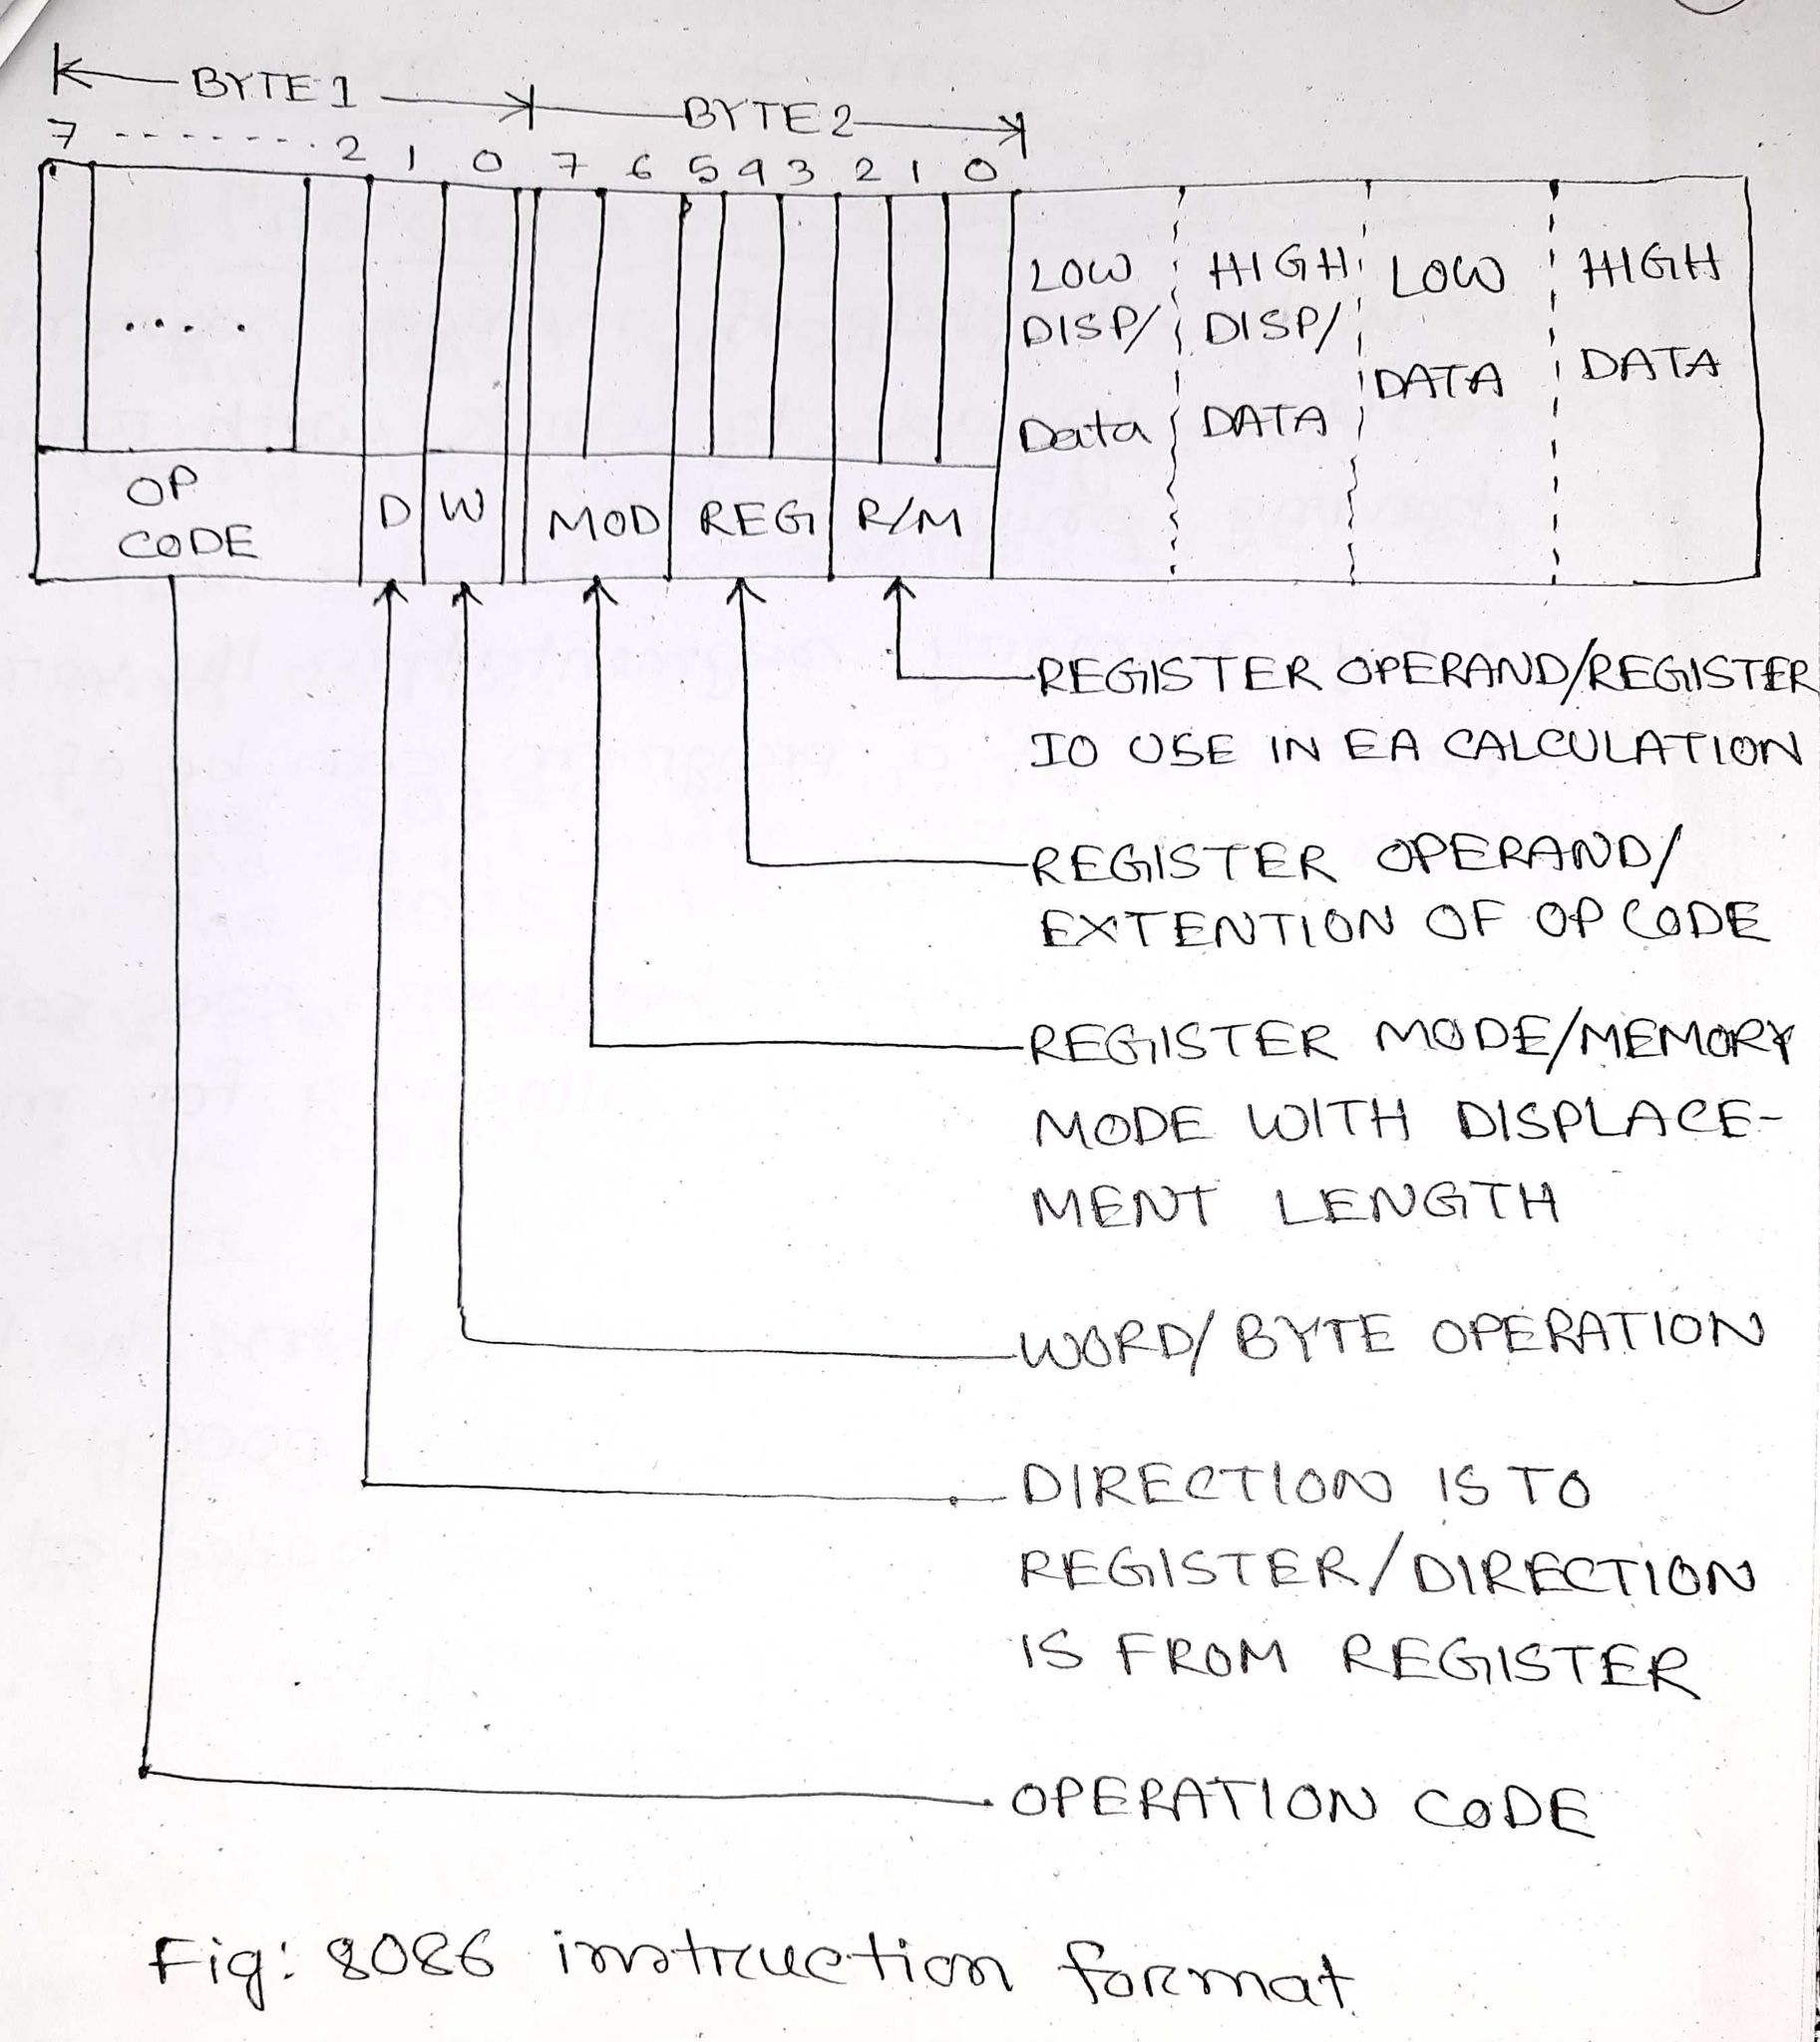 BYTE 1 BYTE 2
7 - - - - - - - 2 1 0 7 6 5 4 3 2 1 0
LOW HIGH LOW HIGH
DISP/ DISP/
.... DATA DATA
Data DATA
OP
CODE D W MOD REG R/M
REGISTER OPERAND/REGISTER
IO USE IN EA CALCULATION
REGISTER OPERAND/
EXTENTION OF OP CODE
REGISTER MODE/MEMORY
MODE WITH DISPLACE-
MENT LENGTH
WORD/ BYTE OPERATION
DIRECTION IS TO
REGISTER/DIRECTION
IS FROM REGISTER
OPERATION CODE
Fig: 8086 instruction format